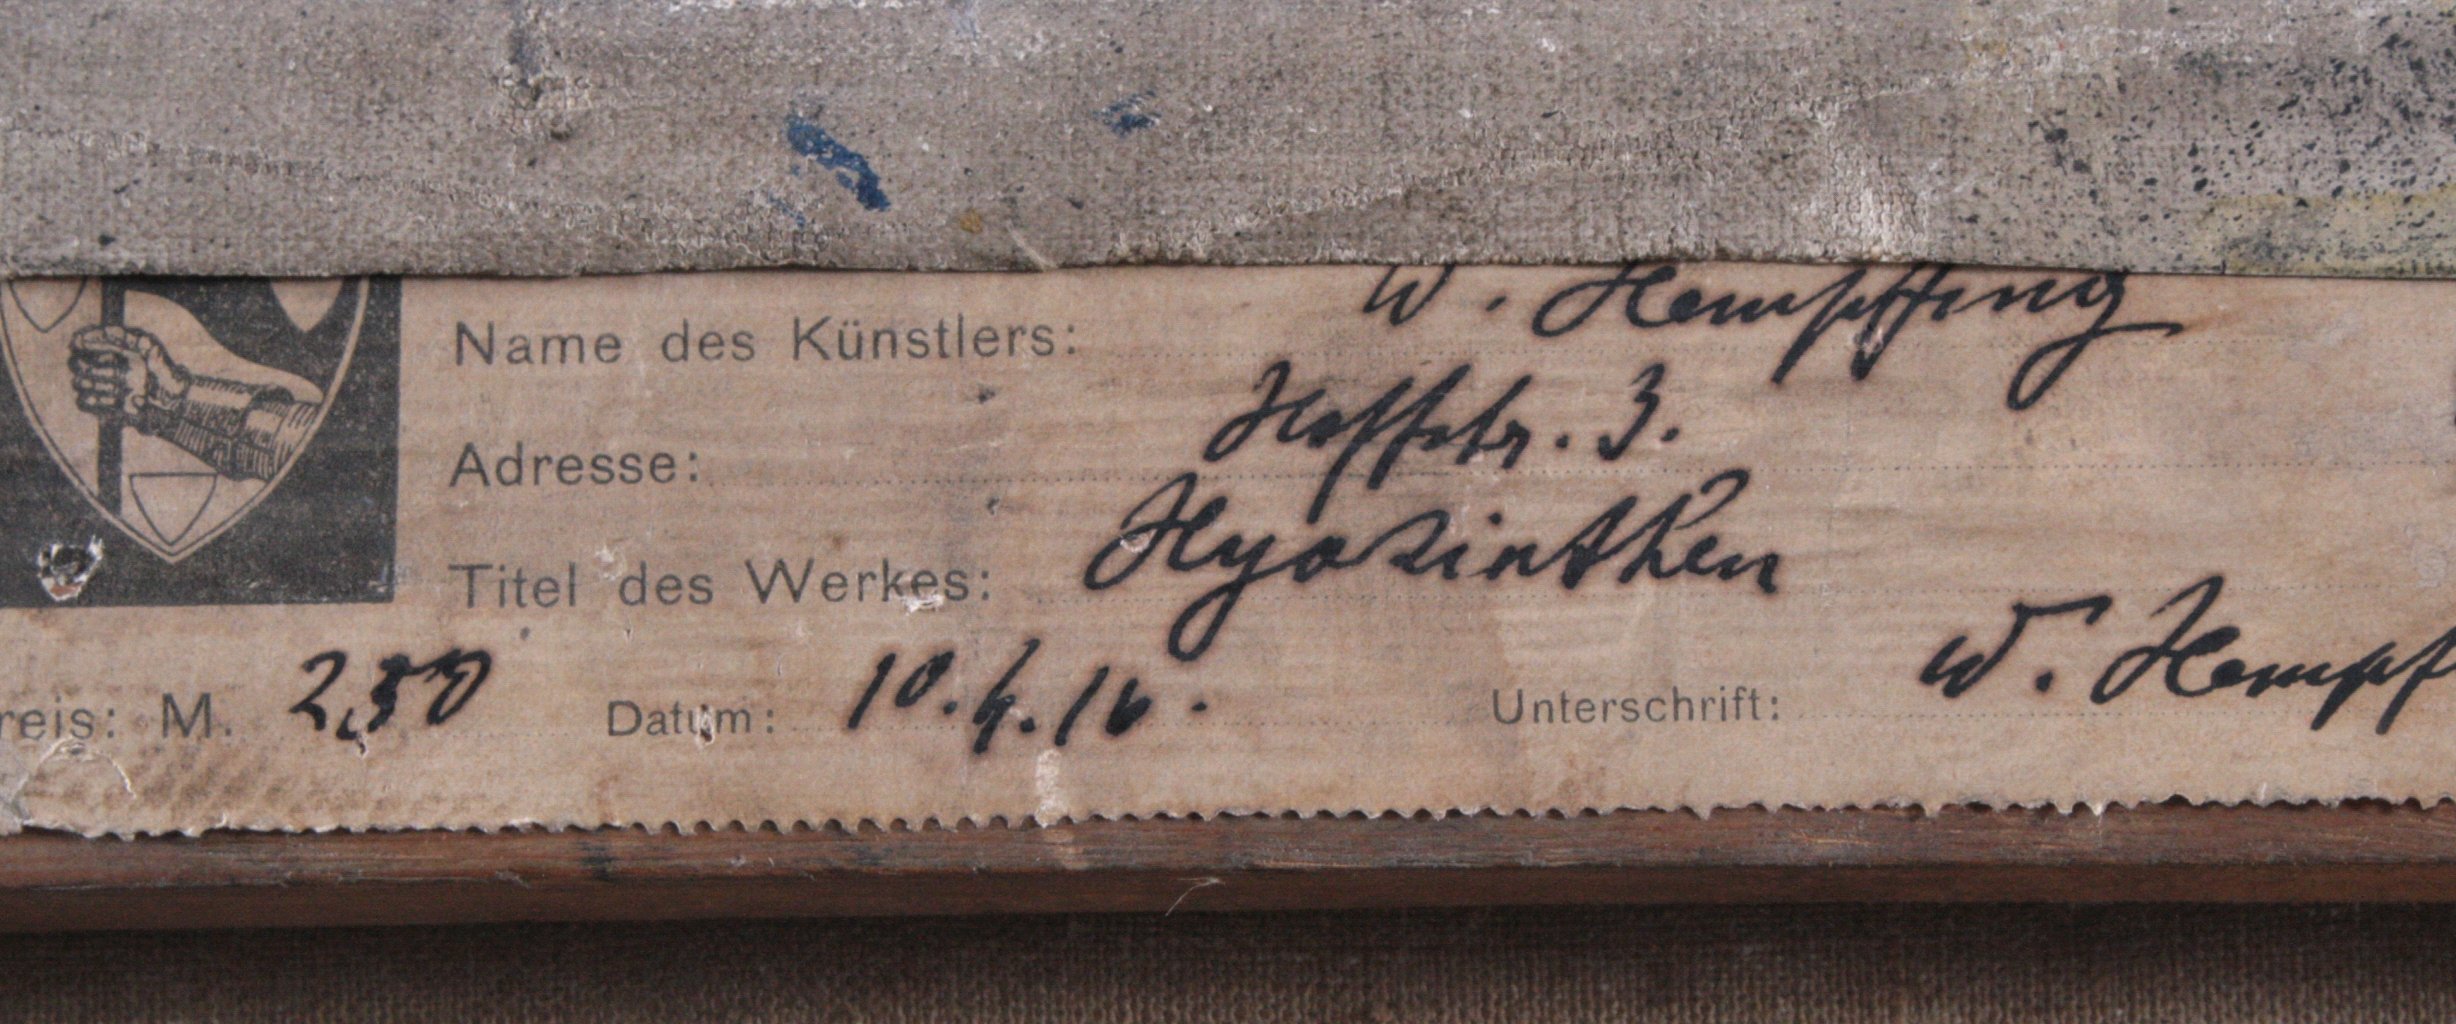 Name des Künstlers: W. Hempfing
Adresse: Hoffstr. 3.
Titel des Werkes: Hyazinthen
reis: M. 250 Datum: 10.4.16. Unterschrift: W. Hempf